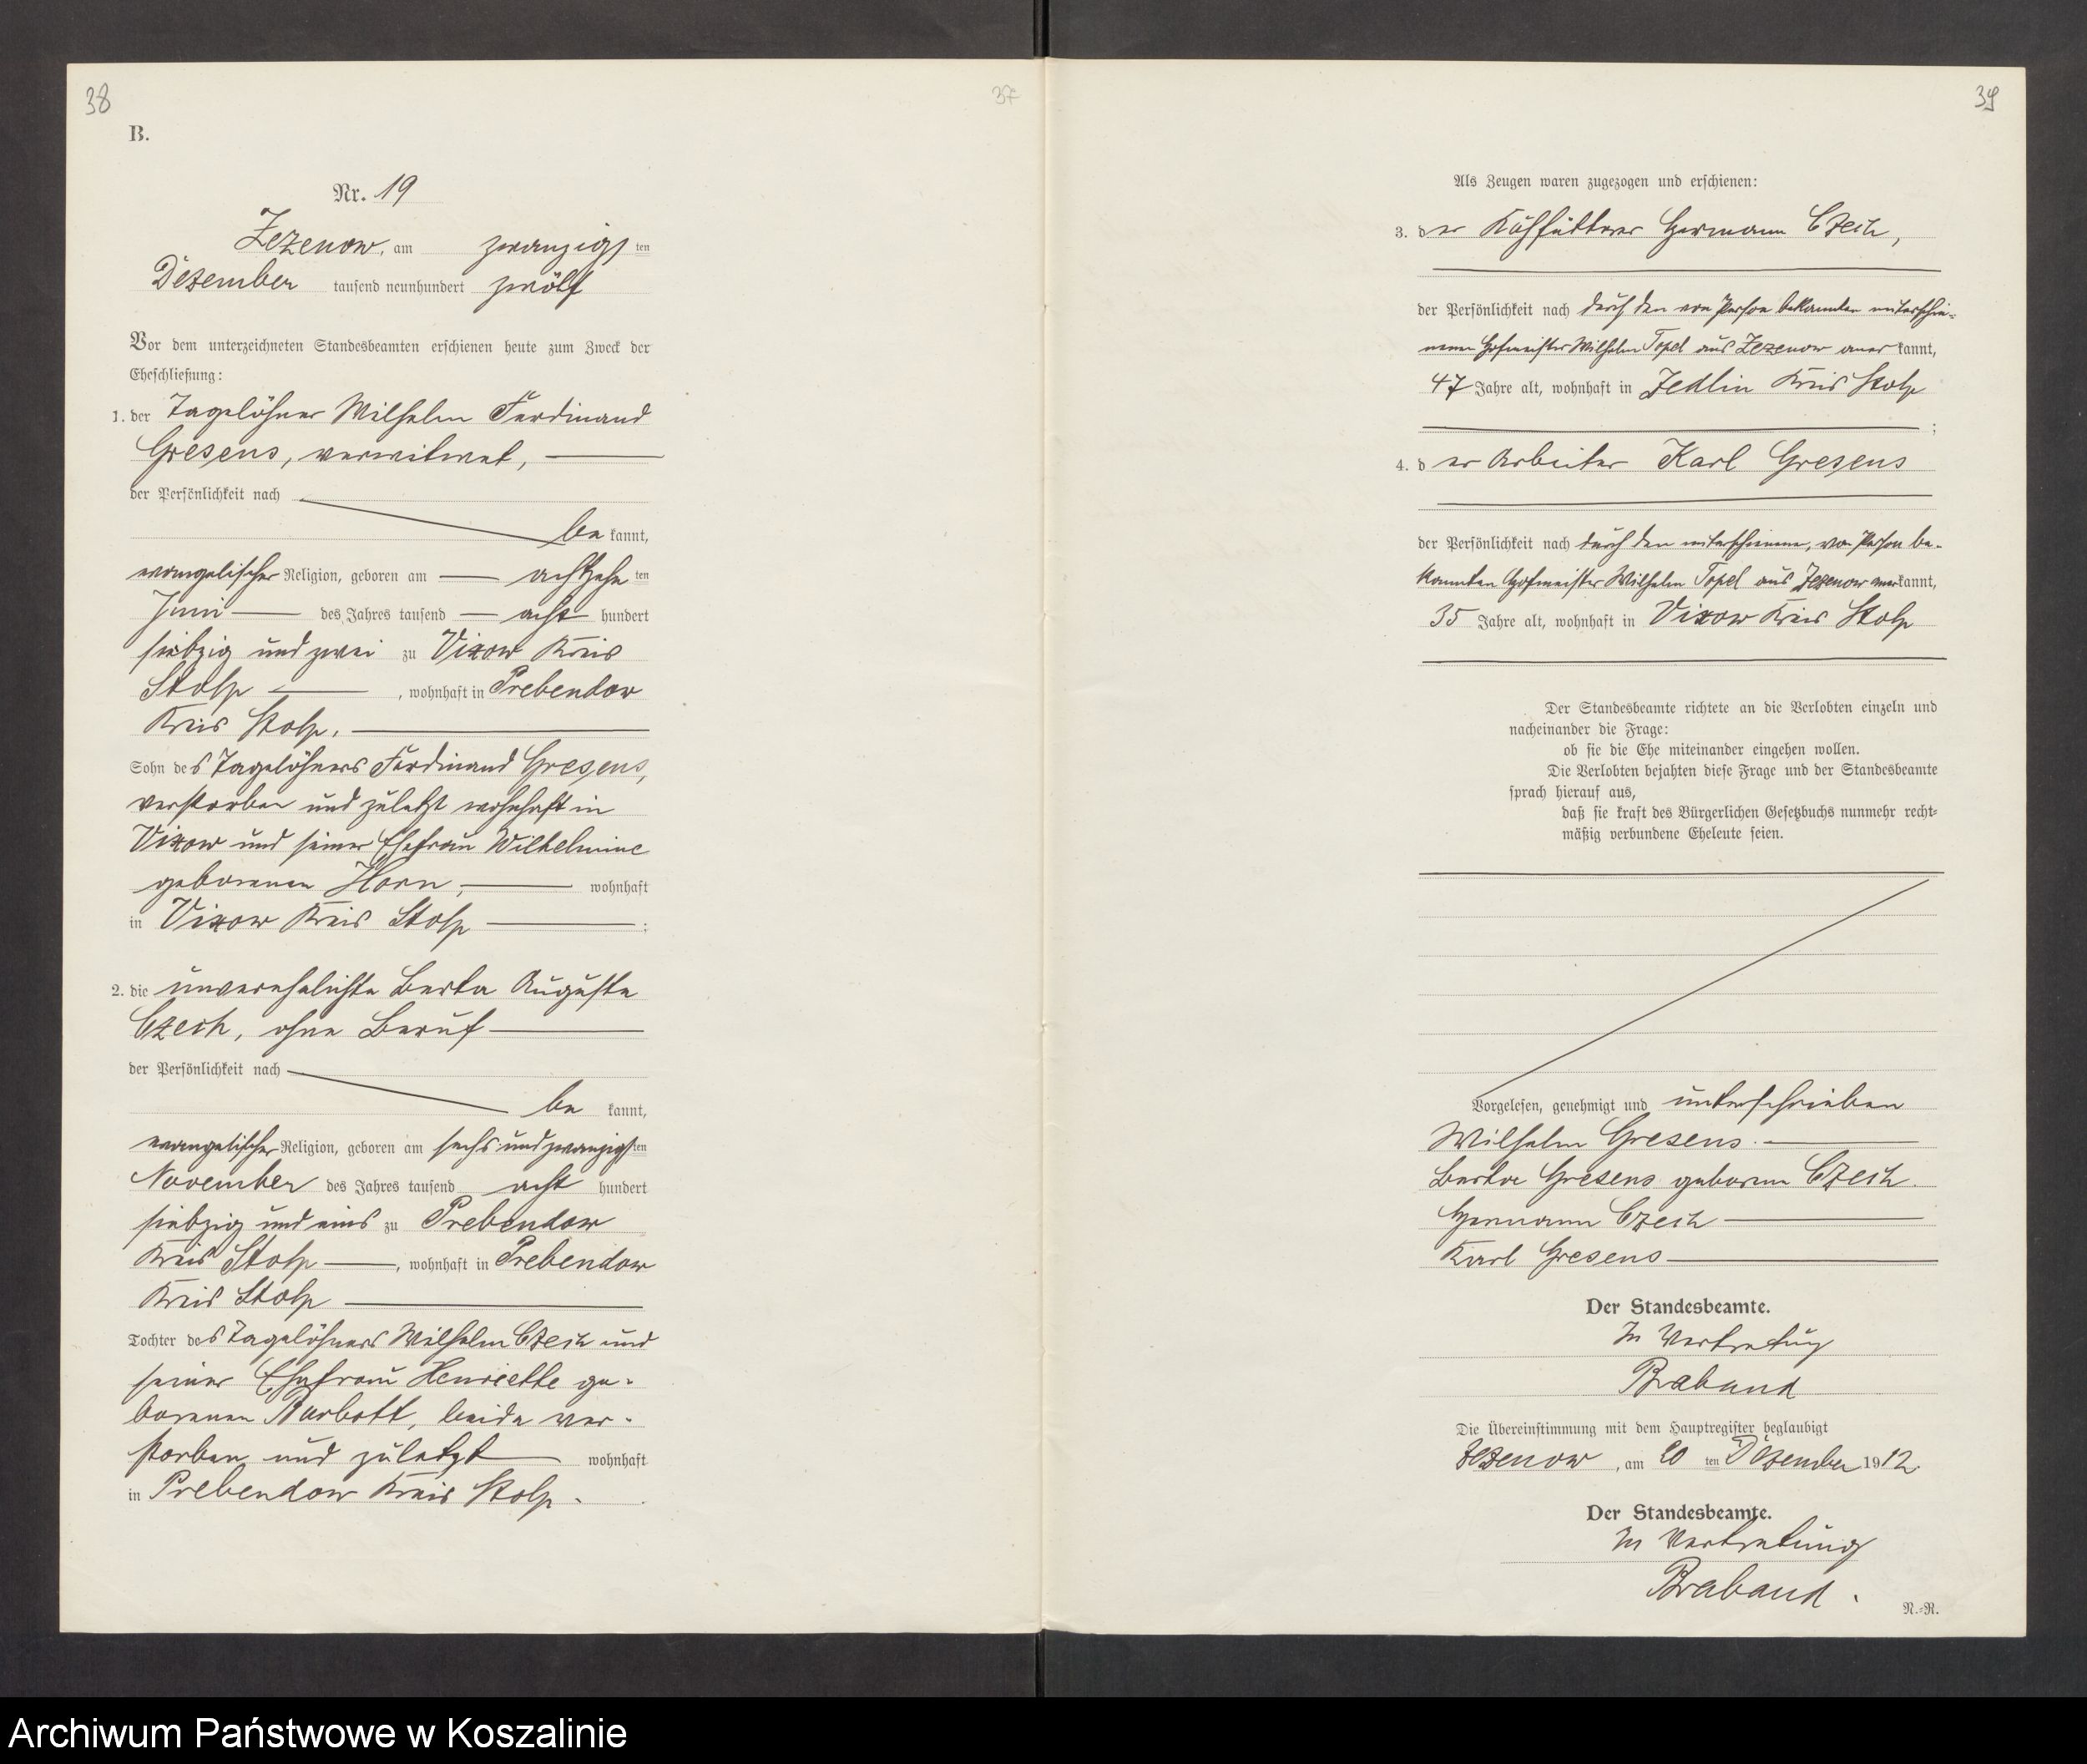 38
37
B.
Nr. 19
Zezenow, am zwanzigsten
Dezember tausend neunhundert zwölf
Vor dem unterzeichneten Standesbeamten erschienen heute zum Zweck der
Eheschließung:
1. der Tagelöhner Wilhelm Ferdinand
Gresens, verwitwet,
der Persönlichkeit nach
be kannt,
evangelischer Religion, geboren am achtzehnten
Juni des Jahres tausend acht hundert
siebzig und zwei zu Vixow Kreis
Stolp, wohnhaft in Prebendow
Kreis Stolp.
Sohn des Tagelöhners Ferdinand Gresens,
verstorben und zuletzt wohnhaft in
Vixow und seiner Ehefrau Wilhelmine
geborenen Horn, wohnhaft
in Vixow Kreis Stolp ;
2. die unverehelichte Berta Auguste
Czech, ohne Beruf
der Persönlichkeit nach
be kannt,
evangelischer Religion, geboren am sechs und zwanzigsten
November des Jahres tausend acht hundert
siebzig und eins zu Prebendow
Kreis Stolp, wohnhaft in Prebendow
Kreis Stolp
Tochter des Tagelöhners Wilhelm Czech und
seiner Ehefrau Henriette ge-
borenen, beide ver-
storben und zuletzt wohnhaft
in Prebendow Kreis Stolp.
39
Als Zeugen waren zugezogen und erschienen:
3. der Kuhfütterer Hermann Czech,
der Persönlichkeit nach durch den von Person bekannten miterschie-
nenen Hofmeister Wilhelm Topel aus Zezenow aner kannt,
47 Jahre alt, wohnhaft in Zedlin Kreis Stolp
;
4. der Arbeiter Karl Gresens
der Persönlichkeit nach durch den miterschienenen, von Person be-
kannten Hofmeister Wilhelm Topel aus Zezenow anerkannt,
35 Jahre alt, wohnhaft in Vixow Kreis Stolp
Der Standesbeamte richtete an die Verlobten einzeln und
nacheinander die Frage:
ob sie die Ehe miteinander eingehen wollen.
Die Verlobten bejahten diese Frage und der Standesbeamte
sprach hierauf aus,
daß sie kraft des Bürgerlichen Gesetzbuchs nunmehr recht-
mäßig verbundene Eheleute seien.
Vorgelesen, genehmigt und unterschrieben
Wilhelm Gresens.
Berta Gresens geborene Czech.
Hermann Czech
Karl Gresens
Der Standesbeamte.
In Vertretung
Braband
Die Übereinstimmung mit dem Hauptregister beglaubigt
Zezenow, am 20 ten Dezember 1912.
Der Standesbeamte.
In Vertretung
Braband.
N.-R.
Archiwum Państwowe w Koszalinie